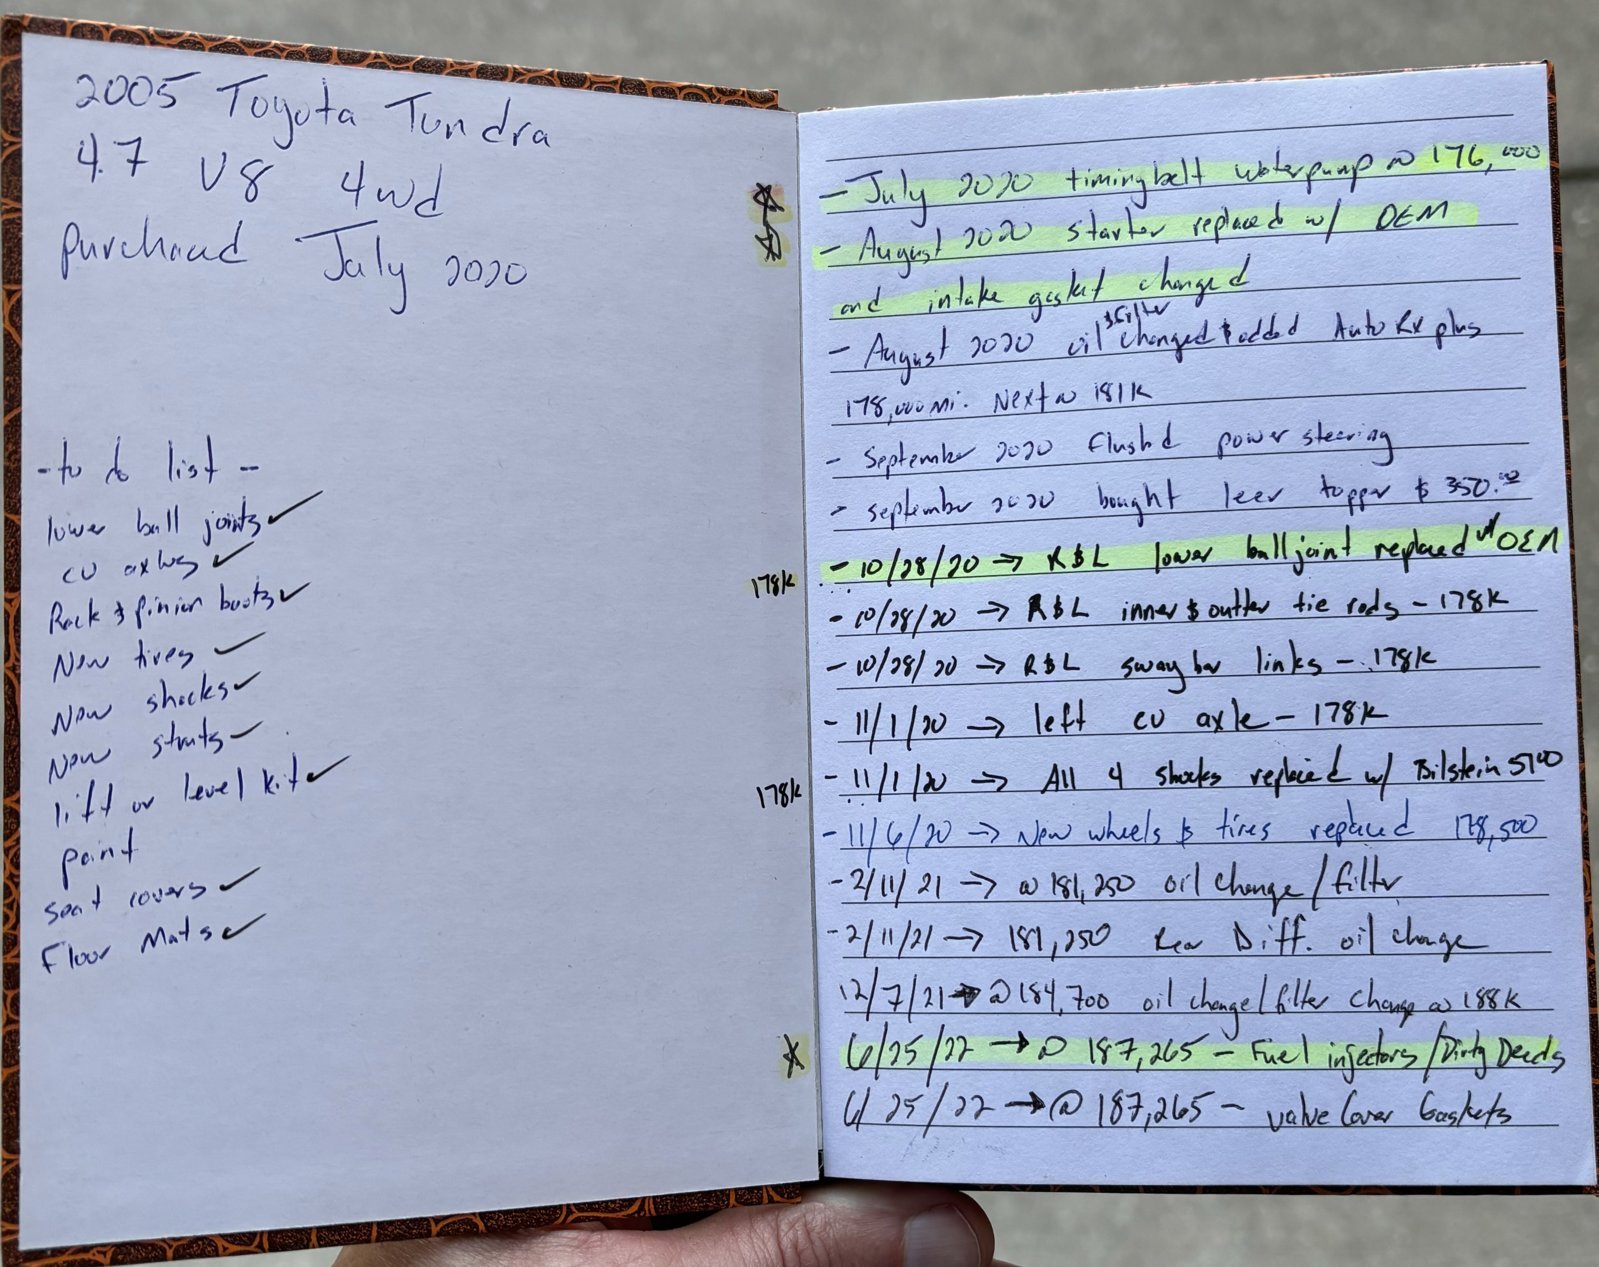 2005 Toyota Tundra
4.7 V8 4wd
purchased July 2020
- to do list -
lower ball joints ✓
cv axles ✓
Rack & pinion boots ✓
New tires ✓
New shocks ✓
New struts ✓
lift or level kit ✓
paint
seat covers ✓
Floor Mats ✓
- July 2020 timing belt waterpump @ 176,000
- August 2020 starter replaced w/ OEM
and intake gasket changed
- August 2020 oil & filter changed & added Auto Rx plus
178,000 mi. Next @ 181k
- September 2020 flushed power steering
- september 2020 bought leer topper $ 350.00
178k - 10/28/20 → R&L lower ball joint replaced w/ OEM
- 10/28/20 → R&L inner & outter tie rods - 178k
- 10/28/20 → R&L sway bar links - 178k
- 11/1/20 → left cv axle - 178k
178k - 11/1/20 → All 4 shocks replaced w/ Bilstein 5100
- 11/6/20 → New wheels & tires replaced 178,500
- 2/11/21 → @ 181,250 oil change/filter
- 2/11/21 → 181,250 Rear Diff. oil change
12/7/21 → @ 184,700 oil change/filter change @ 188k
6/25/22 → @ 187,265 - Fuel injectors/Dirty Deeds
6/25/22 → @ 187,265 - valve Cover Gaskets